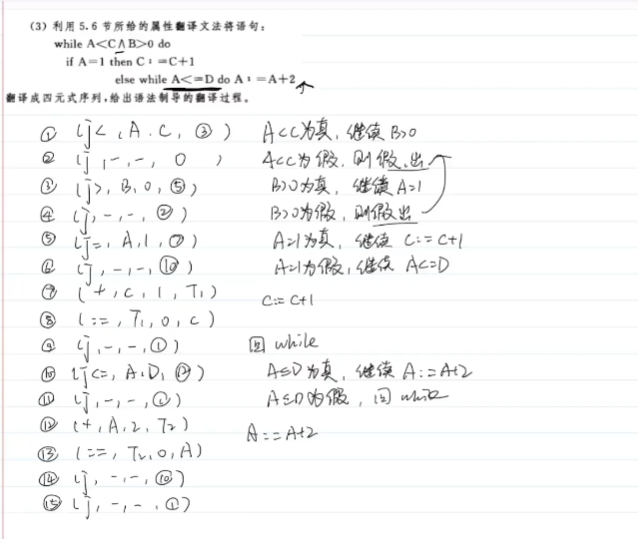 (3) 利用 5.6 节所给的属性翻译文法将语句：
while A<C∧B>0 do
if A=1 then C：=C+1
else while A<=D do A：=A+2
翻译成四元式序列，给出语法制导的翻译过程。
① (j<, A, C, ③) A<C为真，继续 B>0
② (j, -, -, 0 ) A<C为假，则假出
③ (j>, B, 0, ⑤) B>0为真，继续 A=1
④ (j, -, -, ②) B>0为假，则假出
⑤ (j=, A, 1, ⑦) A=1为真，继续 C:=C+1
⑥ (j, -, -, ⑩) A=1为假，继续 A<=D
⑦ (+, C, 1, T1) C:=C+1
⑧ (:=, T1, 0, C)
⑨ (j, -, -, ①) 回 while
⑩ (j<=, A, D, ⑫) A≤D为真，继续 A:=A+2
⑪ (j, -, -, ①) A≤D为假，回 while
⑫ (+, A, 2, T2) A:=A+2
⑬ (:=, T2, 0, A)
⑭ (j, -, -, ⑩)
⑮ (j, -, -, ①)